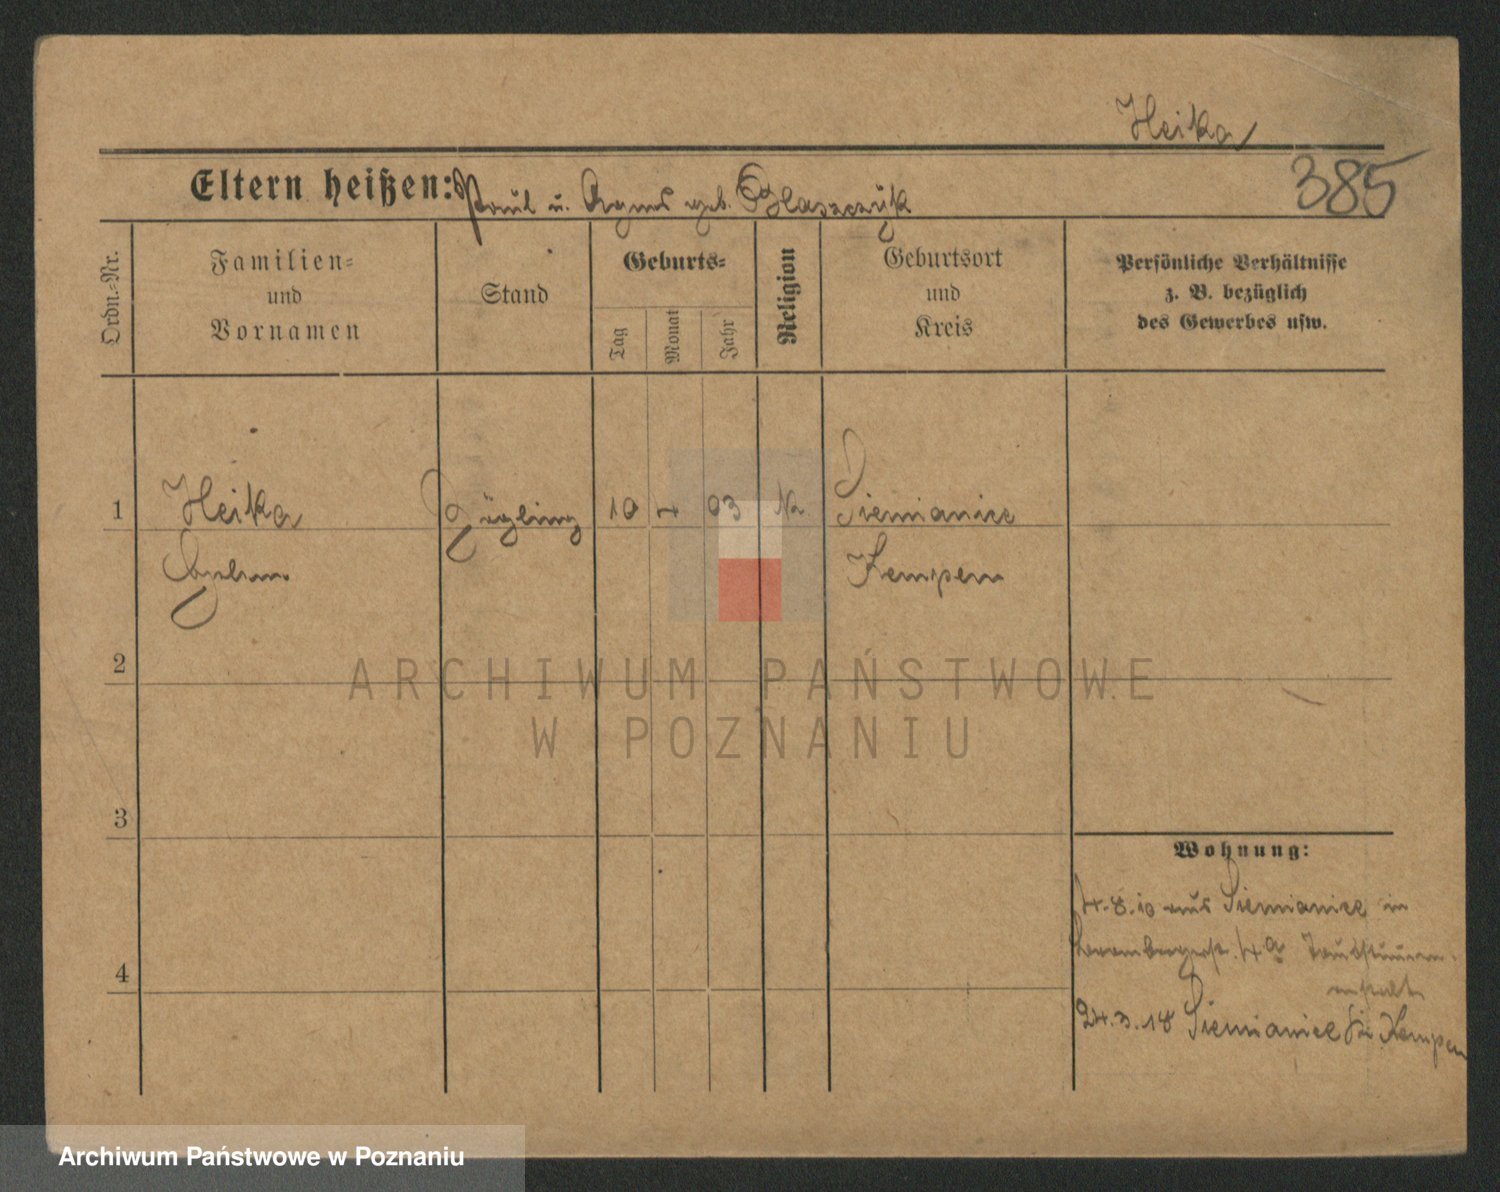 Heika
385
Eltern heißen: Paul u. Agnes geb. Blaszczyk
Ordn.-Nr.
Familien-
und
Vornamen
Stand
Geburts-
Tag
Monat
Jahr
Religion
Geburtsort
und
Kreis
Persönliche Verhältnisse
z. B. bezüglich
des Gewerbes usw.
1
Heika
Zögling
10
4
03
Siemianice
Kempen
2
3
4
Wohnung:
4.8.10 aus Siemianice in
4a Taubstummen-
anstalt
24.3.18 Siemianice Kempen
ARCHIWUM PAŃSTWOWE
W POZNANIU
Archiwum Państwowe w Poznaniu